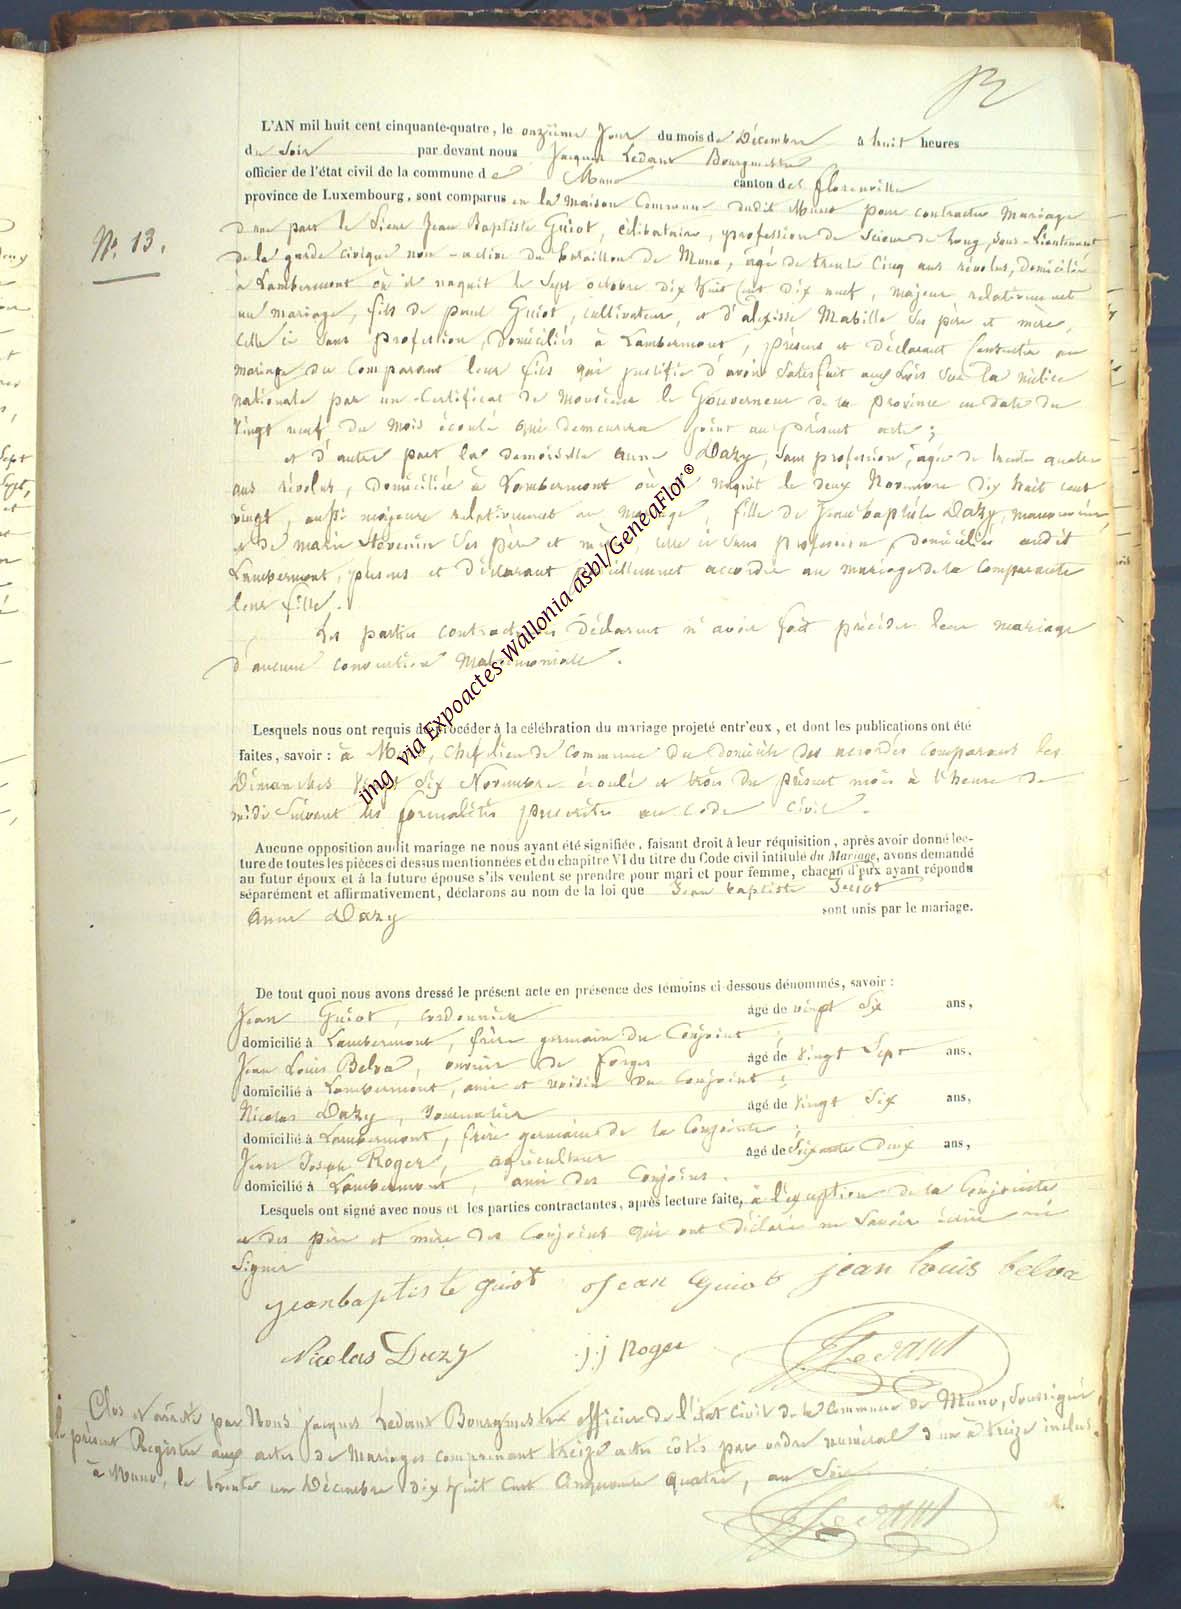 N° 13.
L'AN mil huit cent cinquante-quatre, le onzième jour du mois de Décembre à huit heures
du soir par devant nous Jacques Ledant Bourgmestre
officier de l'état civil de la commune de Muno canton de Florenville
province de Luxembourg, sont comparus en la Maison Commune dudit Muno pour contracter Mariage
d'une part le Sieur Jean Baptiste Guiot, célibataire, profession de Scieur de long, Sous-Lieutenant
de la garde civique non-active du bataillon de Muno, âgé de trente Cinq ans révolus, domicilié
à Lambermont où il naquit le Sept octobre dix huit Cent dix neuf, majeur relativement
au mariage, fils de paul Guiot, cultivateur, et d'alexisse Mabille Ses père et mère,
celle ci Sans profession, Domiciliés à Lambermont, présens et Déclarant Consentir au
mariage du Comparant leur fils qui justifie d'avoir Satisfait aux Lois Sur la milice
nationale par un Certificat de Monsieur le Gouverneur de la province en date du
vingt neuf du mois écoulé qui demeurera joint au présent acte ;
et d'autre part la demoiselle Anne Dazy, Sans profession, âgée de trente quatre
ans révolus, domiciliée à Lambermont où naquit le deux Novembre dix huit cent
vingt, aussi majeure relativement au mariage, fille de Jean baptiste Dazy, manouvrier,
et de marie Stevenin Ses père et mère, celle ci Sans profession, domiciliés audit
Lambermont, présens et Déclarant accorder au mariage de la Comparante
leur fille.
Les parties contractantes Déclarent n'avoir fait précéder leur mariage
d'aucune convention Matrimoniale.
Lesquels nous ont requis de procéder à la célébration du mariage projeté entr'eux, et dont les publications ont été
faites, savoir : à Muno, Chef lieu de Commune du domicile des accordés Comparans les
Dimanches Vingt Six Novembre écoulé et trois du présent mois à l'heure de
midi Suivant les formalités prescrites au Code Civil.
Aucune opposition audit mariage ne nous ayant été signifiée, faisant droit à leur réquisition, après avoir donné lec-
ture de toutes les pièces ci dessus mentionnées et du chapitre VI du titre du Code civil intitulé du Mariage, avons demandé
au futur époux et à la future épouse s'ils veulent se prendre pour mari et pour femme, chacun d'eux ayant répondu
séparément et affirmativement, déclarons au nom de la loi que Jean baptiste Guiot
Anne Dazy sont unis par le mariage.
De tout quoi nous avons dressé le présent acte en présence des témoins ci-dessous dénommés, savoir :
Jean Guiot, cordonnier âgé de vingt Six ans,
domicilié à Lambermont, frère germain du Conjoint ;
Jean Louis Belva, ouvrier de forges âgé de Vingt Sept ans,
domicilié à Lambermont, ami et voisin du Conjoint ;
Nicolas Dazy, Journalier âgé de Vingt Six ans,
domicilié à Lambermont, frère germain de la Conjointe ;
Jean Joseph Roger, agriculteur âgé de Soixante Deux ans,
domicilié à Lambermont, ami des Conjoins.
Lesquels ont signé avec nous et les parties contractantes, après lecture faite, à l'exception de la Conjointe
et des père et mère des Conjoins qui ont déclaré ne Savoir écrire ni
Signer
jean baptiste guiot Jean Guiot jean louis belva
Nicolas Dazy j.j Roger J Ledant
Clos et arrêté par Nous Jacques Ledant Bourgmestre officier de l'état civil de la Commune de Muno, Soussigné
le présent Registre aux actes de Mariages comprenant treize actes côtés par ordre numéral d'un à treize inclus.
à Muno, le trente un Décembre dix huit Cent Cinquante quatre, au Soir
J Ledant
img via Expoactes-Wallonia asbl/GeneaFlor®